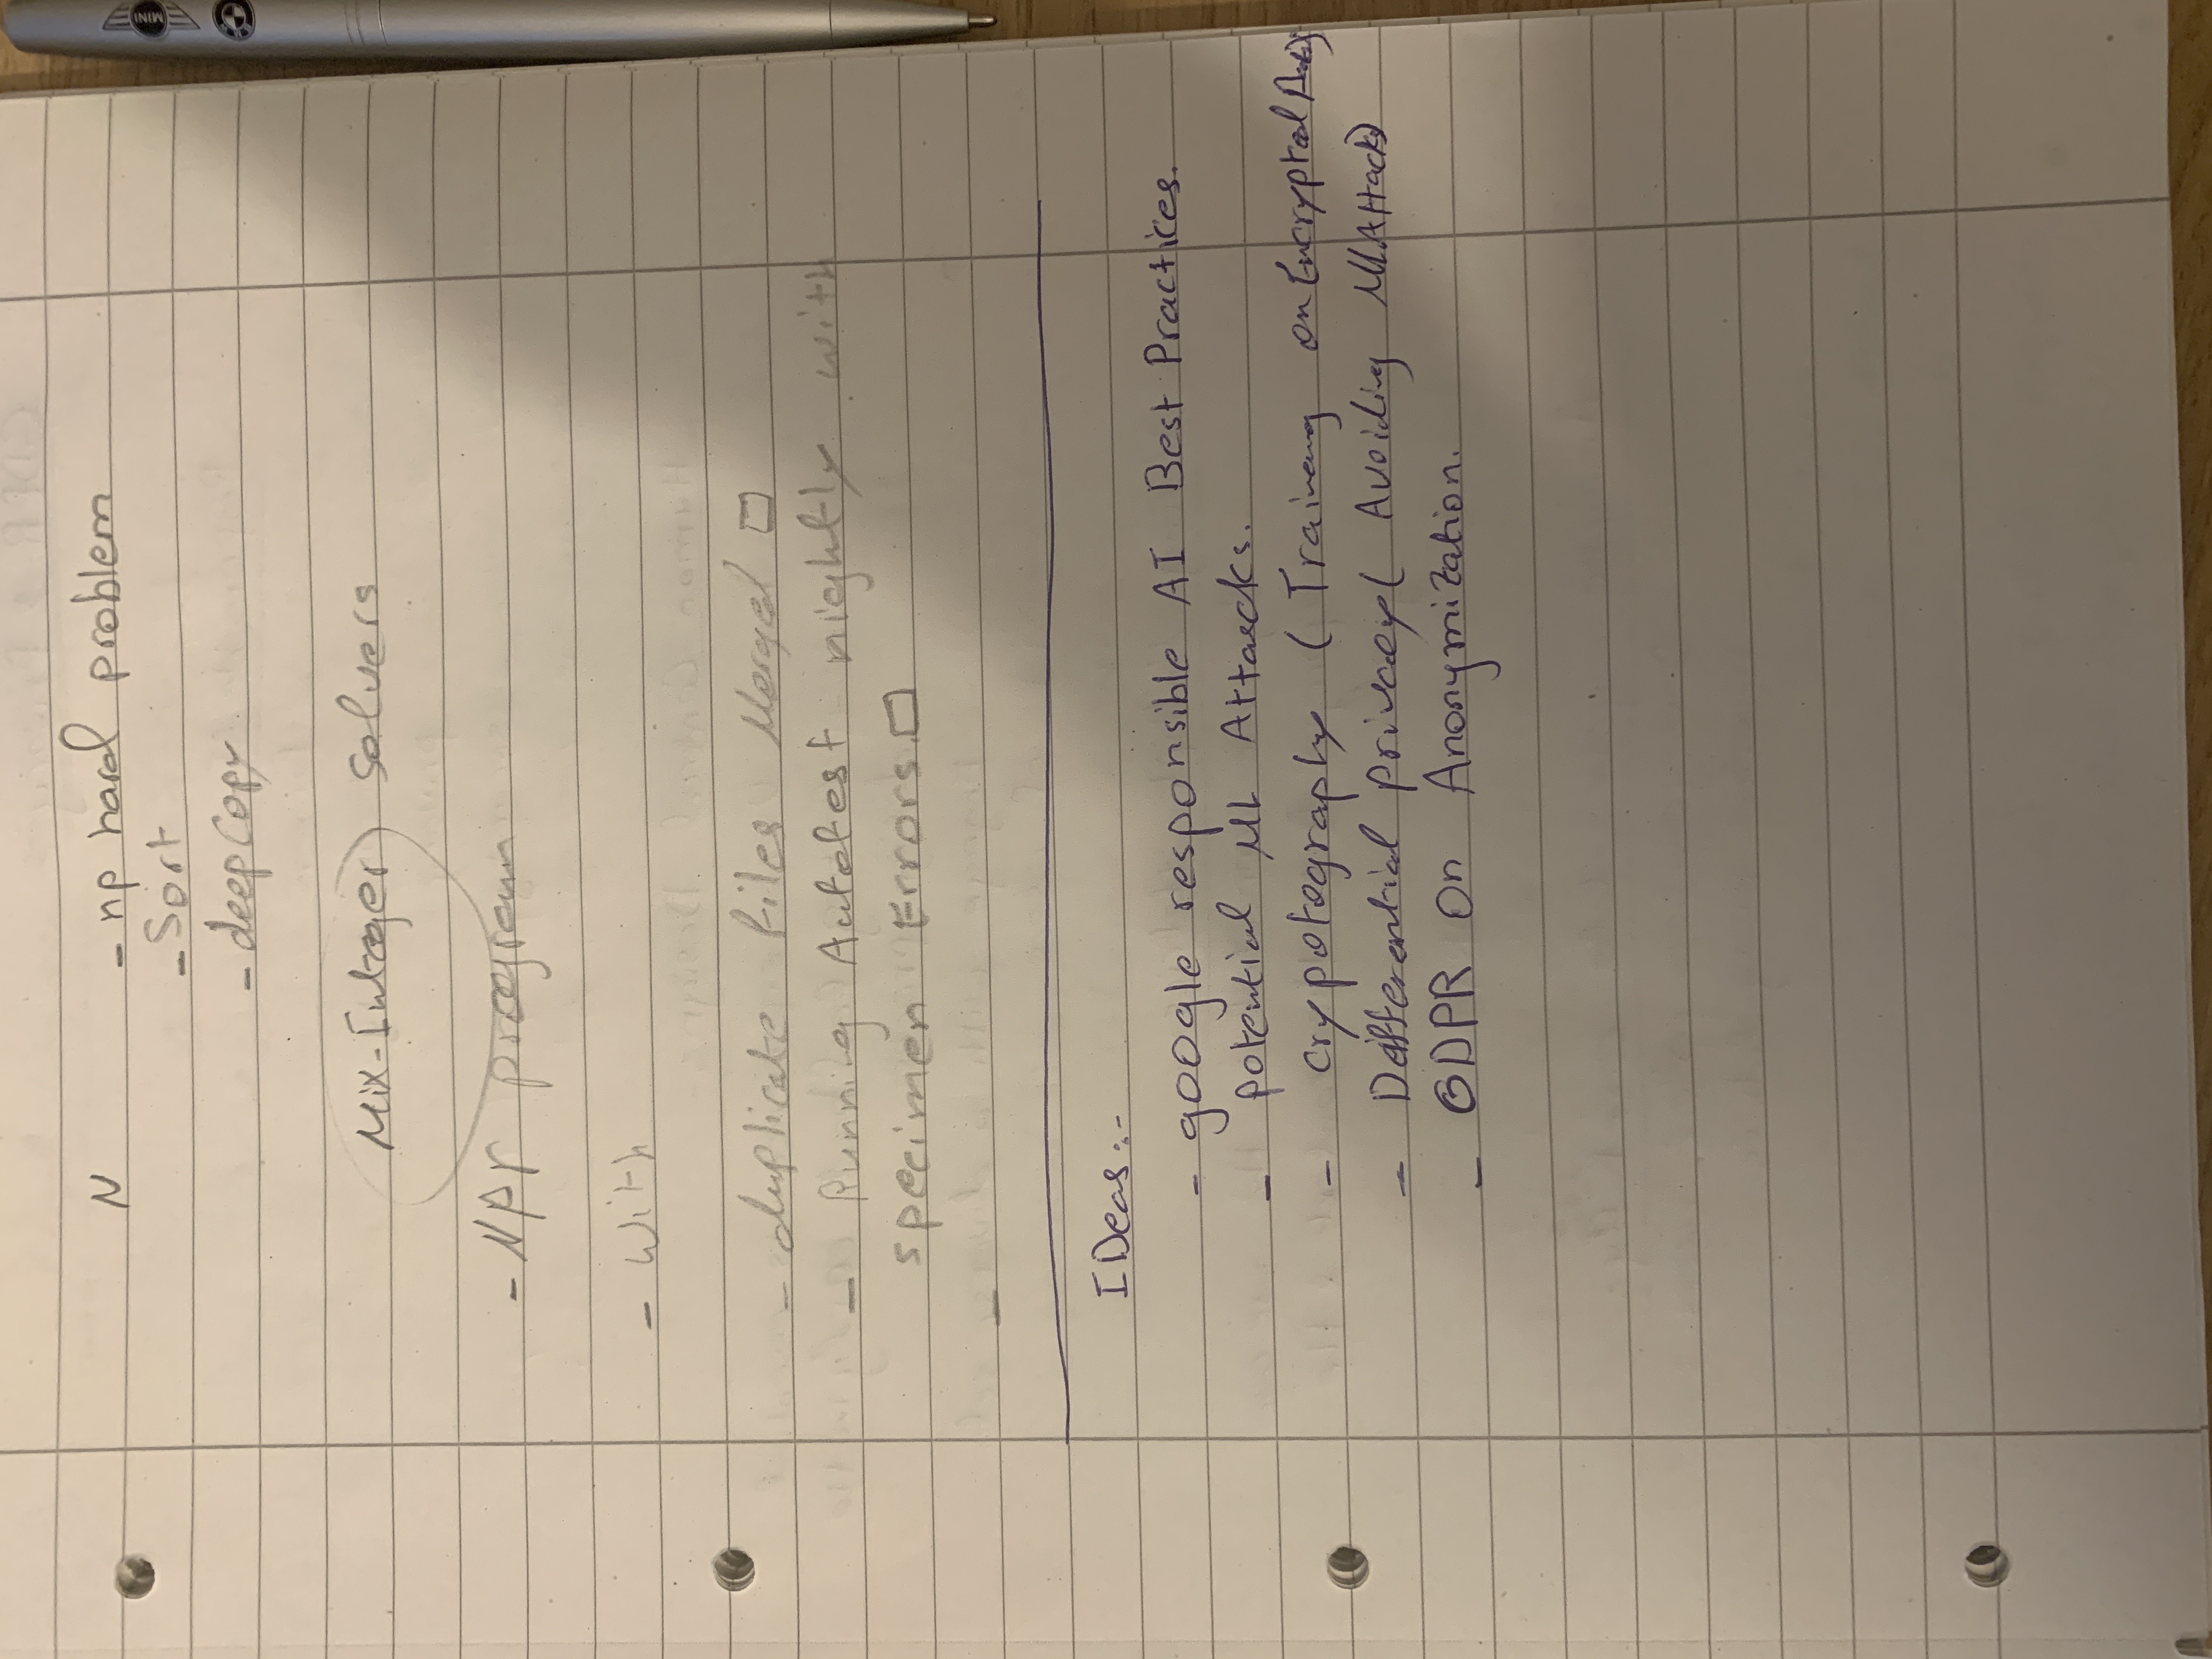 N - np hard problem
- Sort
- deepCopy
Mix-Integer Solvers
- program
- With
- duplicate files Merged
- Running Autotest nightly with
specimen Errors.
-
IDeas:-
- google responsible AI Best Practices.
- potential ML Attascks.
- crypotography ( Training on Encrypted Data)
- Differential privacy ( Avoiding ML Attack)
- GDPR On Anonymization.
MINI